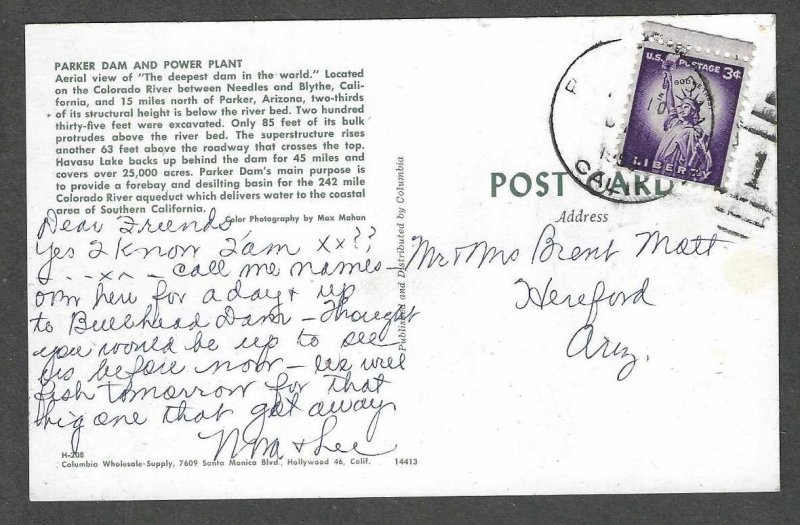 PARKER DAM AND POWER PLANT
Aerial view of "The deepest dam in the world." Located
on the Colorado River between Needles and Blythe, Cali-
fornia, and 15 miles north of Parker, Arizona, two-thirds
of its structural height is below the river bed. Two hundred
thirty-five feet were excavated. Only 85 feet of its bulk
protrudes above the river bed. The superstructure rises
another 63 feet above the roadway that crosses the top.
Havasu Lake backs up behind the dam for 45 miles and
covers over 25,000 acres. Parker Dam's main purpose is
to provide a forebay and desilting basin for the 242 mile
Colorado River aqueduct which delivers water to the coastal
area of Southern California.
Color Photography by Max Mahan
Dear Friends,
Yes I know I am xx??
call me names –
here for a day & up
to Bullhead Dam – Thought
you would be up to see
us before now – we will
fish tomorrow for that
big one that got away
& Lee
H-208
Columbia Wholesale-Supply, 7609 Santa Monica Blvd., Hollywood 46, Calif.
14413
Published and Distributed by Columbia
U.S. POSTAGE 3¢
LIBERTY
CAL
POST CARD
Address
Mr & Mrs Brent Mott
Hereford
Ariz.